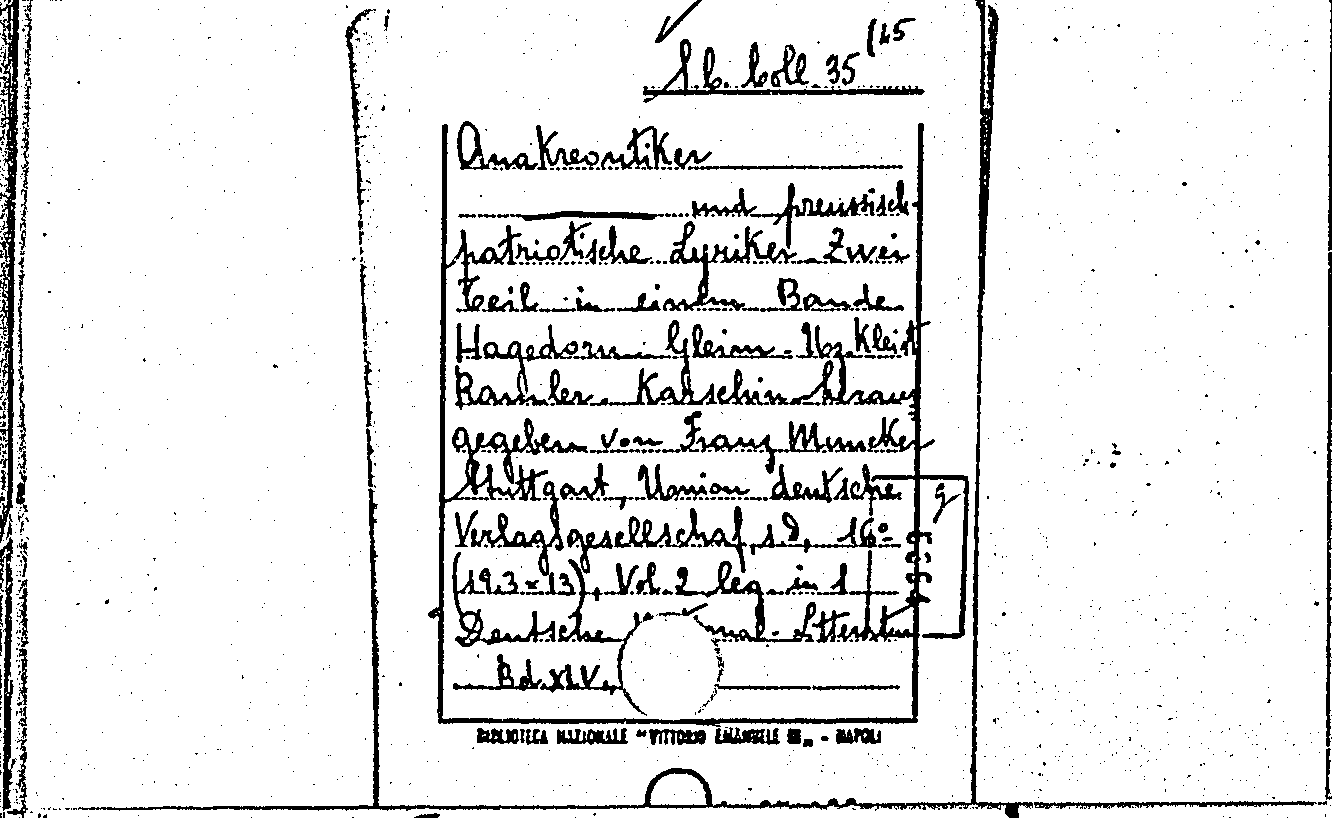 S.b. Coll. 35 (45
Anakreontiker
und preussisch-
patriotische Lyriker. Zwei
Teil in einem Bande
Hagedorn. Gleim. Uz. Kleist
Ramler. Karschin. heraus
gegeben von Franz Muncker
Stuttgart, Union deutsche
Verlagsgesellschaf, s.d, 16º
(19.3 × 13), Vol. 2 leg. in 1
Deutsche Litteratur
Bd. XLV,
BIBLIOTECA NAZIONALE "VITTORIO EMANUELE III„ - NAPOLI